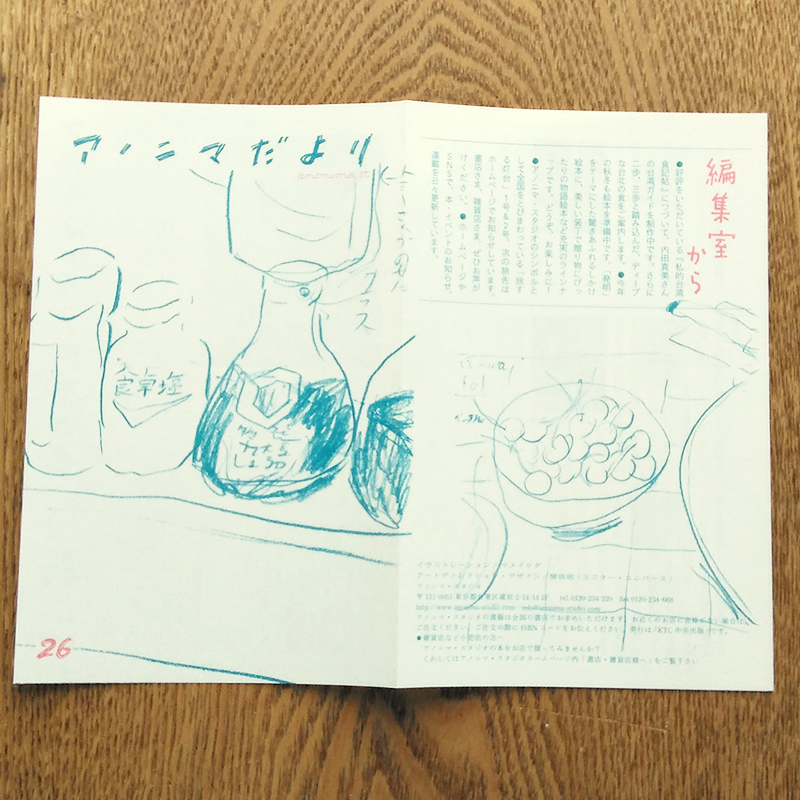 アノニマだより
anonima st
ソース
食卓塩
しょうゆ
26
編集室
から
●好評をいただいている『私的台湾
食記帖』につづいて、内田真美さん
の台湾ガイドを制作中です。さらに
二歩、三歩と踏み込んだ、ディープ
な台北の食をご案内します。●今年
の秋冬も絵本を準備中です。「発明」
をテーマにした驚きあふれるしかけ
絵本に、美しい装丁で贈り物にぴっ
たりの物語絵本など充実のラインナ
ップです。どうぞ、お楽しみに！
●アノニマ・スタジオのシンボルと
して全国をとびまわっている「旅す
る灯台」1号&2号。次の旅先は
ホームページでお知らせしています。
書店さま、雑貨店さま、ぜひお声が
けください。●ホームページや
SNSで、本・イベントのお知らせ、
連載を日々更新しています。
アノニマ・スタジオ
〒111-0051 東京都台東区蔵前 2-14-14 2F tel.0120-234-220 fax 0120-234-668
アノニマ・スタジオの書籍は全国の書店でお求めいただけます。お近くのお店に在庫がない場合は
ご注文ください。ご注文の際に ISBN コードをお伝えください。発行は「KTC 中央出版」です。
●雑貨店など小売店の方へ
アノニマ・スタジオの本をお店で扱ってみませんか？
くわしくはアノニマ・スタジオホームページ内「書店・雑貨店様へ」をご覧下さい